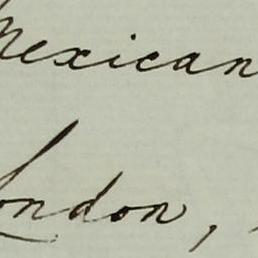 Mexican
London,